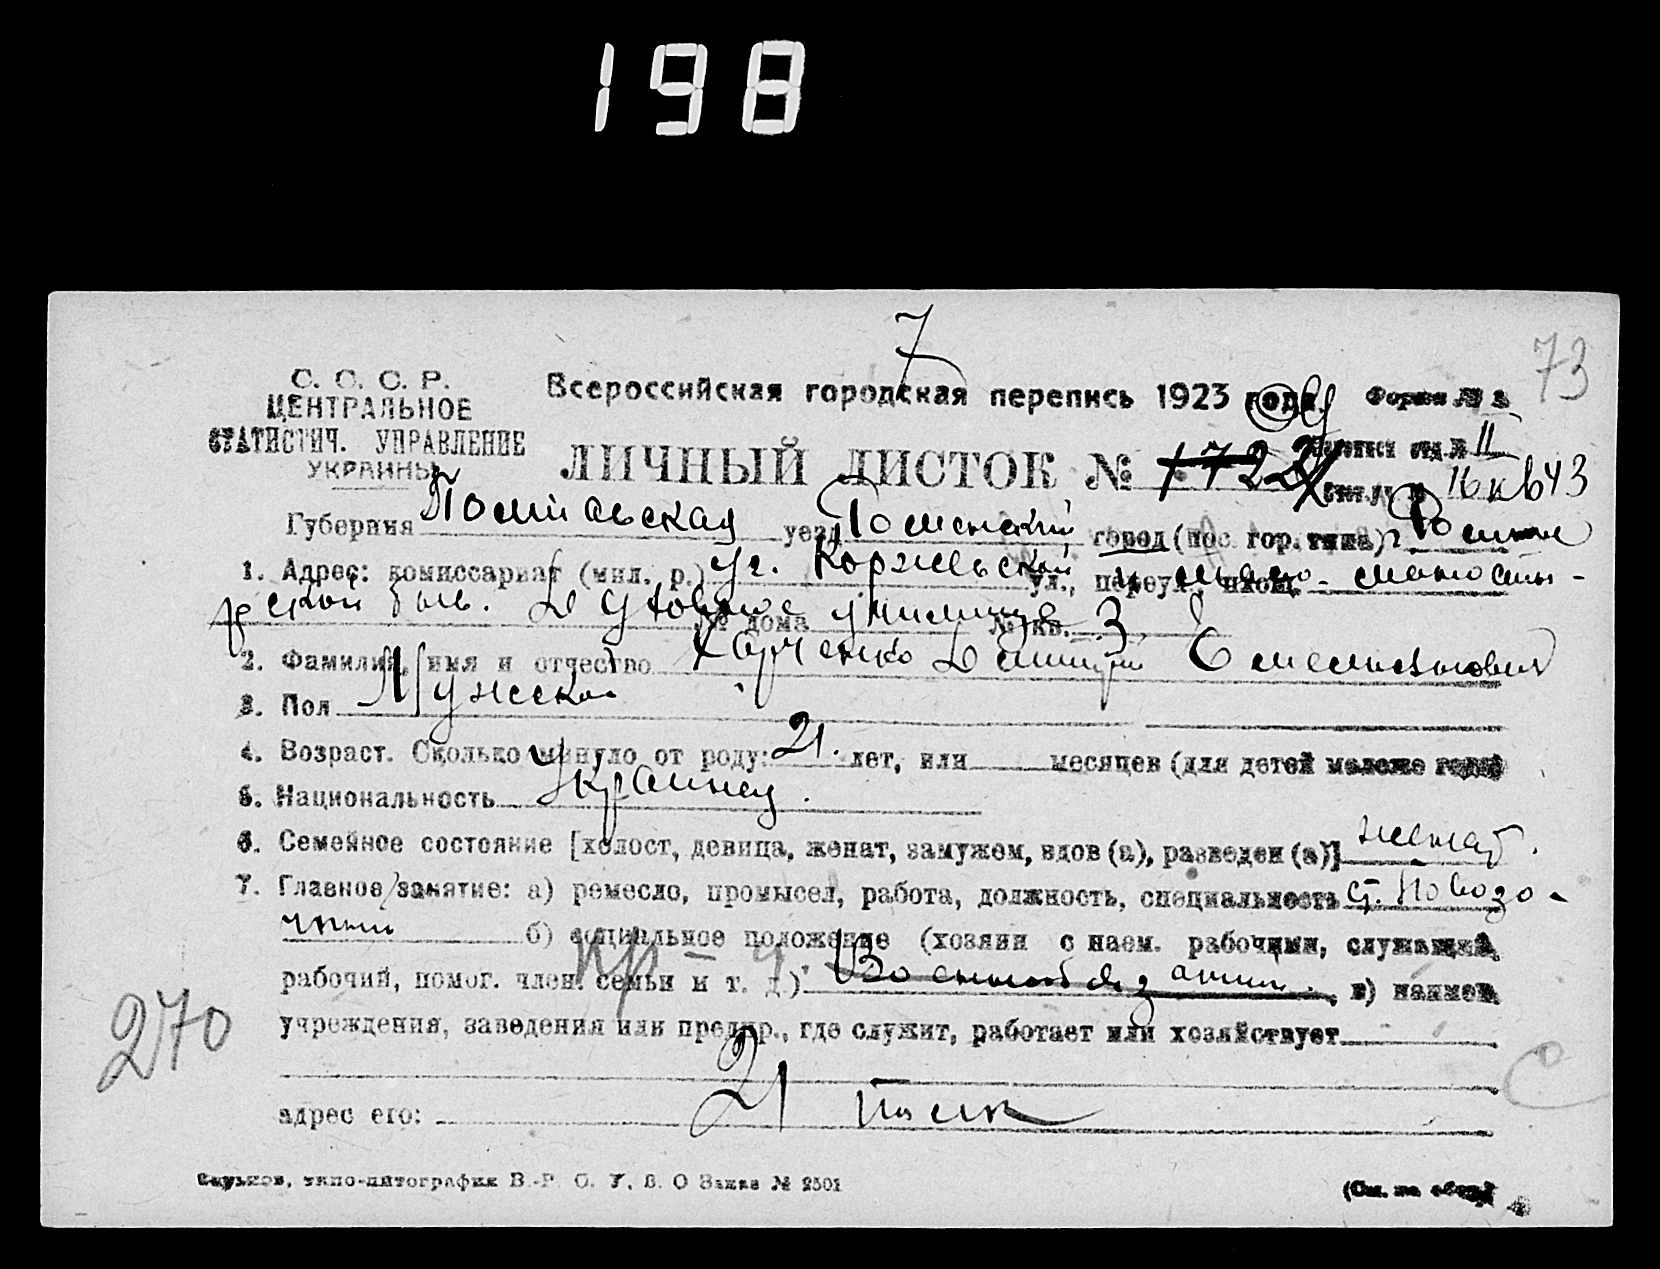 198
7
73
С. С. С. Р.
ЦЕНТРАЛЬНОЕ
СТАТИСТИЧ. УПРАВЛЕНИЕ
УКРАИНЫ
Всероссийская городская перепись 1923 года.
Форма № 2
ЛИЧНЫЙ ЛИСТОК № 1722
отд. № II
16 кв 43
Губерния Полтавская уезд Роменский город (пос. гор. типа) г. Ромны
1. Адрес: комиссариат (мил. р.) уг. Коржевской ул., переул., площ. и мало-монасты-
рской быв. Духовное училище № дома № кв. 3.
2. Фамилия, имя и отчество Харченко Димитрий Емельянович
3. Пол Мужской
4. Возраст. Сколько минуло от роду: 21. лет, или месяцев (для детей моложе года)
5. Национальность Украинец.
6. Семейное состояние [холост, девица, женат, замужем, вдов (а), разведен (а)] женат.
7. Главное занятие: а) ремесло, промысел, работа, должность, специальность ст. повозо-
чный б) социальное положение (хозяин с наем. рабочими, служащий,
рабочий, помог. член. семьи и т. д.) Военнообязанный. в) наимен.
учреждения, заведения или предпр., где служит, работает или хозяйствует
270
21 полк
С
адрес его:
Харьков, типо-литография В.-Р. С. У. В. О Заказ № 2501
(См. на обор.)